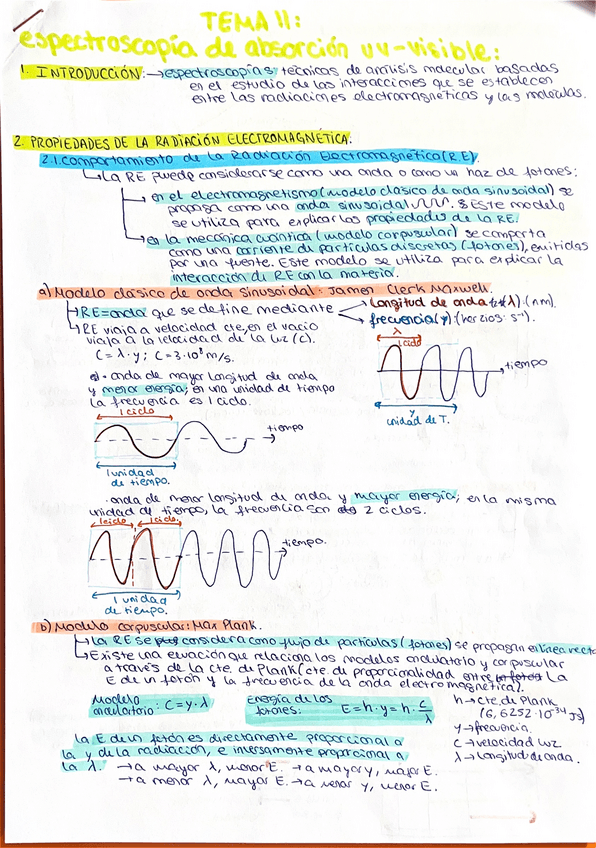 TEMA 11:
espectroscopía de absorción uv-visible:
1. INTRODUCCIÓN: → espectroscopías; técnicas de análisis molecular basadas
en el estudio de las interacciones que se establecen
entre las radiaciones electromagnéticas y las moléculas.
2. PROPIEDADES DE LA RADIACIÓN ELECTROMAGNÉTICA.
2.1. Comportamiento de la Radiación Electromagnética (R.E).
La RE puede considerarse como una onda o como un haz de fotones:
→ en el electromagnetismo (modelo clásico de onda sinusoidal) se
propaga como una onda sinusoidal. Este modelo
se utiliza para explicar las propiedades de la RE.
→ en la mecánica cuántica (modelo corpuscular) se comporta
como una corriente de partículas discretas (fotones), emitidas
por una fuente. Este modelo se utiliza para explicar la
interacción de RE con la materia.
a) Modelo clásico de onda sinusoidal: James Clerk Maxwell.
→ RE=onda que se define mediante
→ Longitud de onda (λ): (nm).
→ frecuencia (γ): (herzios: s⁻¹).
→ RE viaja a velocidad cte, en el vacío
viaja a la velocidad de la luz (c).
C = λ · γ; C = 3·10⁸ m/s.
λ
1 ciclo
tiempo
γ
unidad de T.
· onda de mayor longitud de onda
y menor energía; en una unidad de tiempo
la frecuencia es 1 ciclo.
1 ciclo
tiempo
1 unidad
de tiempo.
· onda de menor longitud de onda y mayor energía; en la misma
unidad de tiempo, la frecuencia son 2 ciclos.
1 ciclo 1 ciclo
tiempo.
1 unidad
de tiempo.
b) Modelo corpuscular: Max Plank.
→ La RE se considera como flujo de partículas (fotones) se propagan en línea recta
→ Existe una ecuación que relaciona los modelos ondulatorio y corpuscular
a través de la cte. de Plank (cte. de proporcionalidad entre la
E de un fotón y la frecuencia de la onda electromagnética).
Modelo
ondulatorio: C = γ · λ
Energía de los
fotones: E = h · γ = h · C/λ
h → cte. de Plank
(6,6252·10⁻³⁴ Js)
γ → frecuencia.
C → velocidad luz
λ → longitud de onda.
la E de un fotón es directamente proporcional a
la γ de la radiación, e inversamente proporcional a
la λ. → a mayor λ, menor E. → a mayor γ, mayor E.
→ a menor λ, mayor E. → a menor γ, menor E.